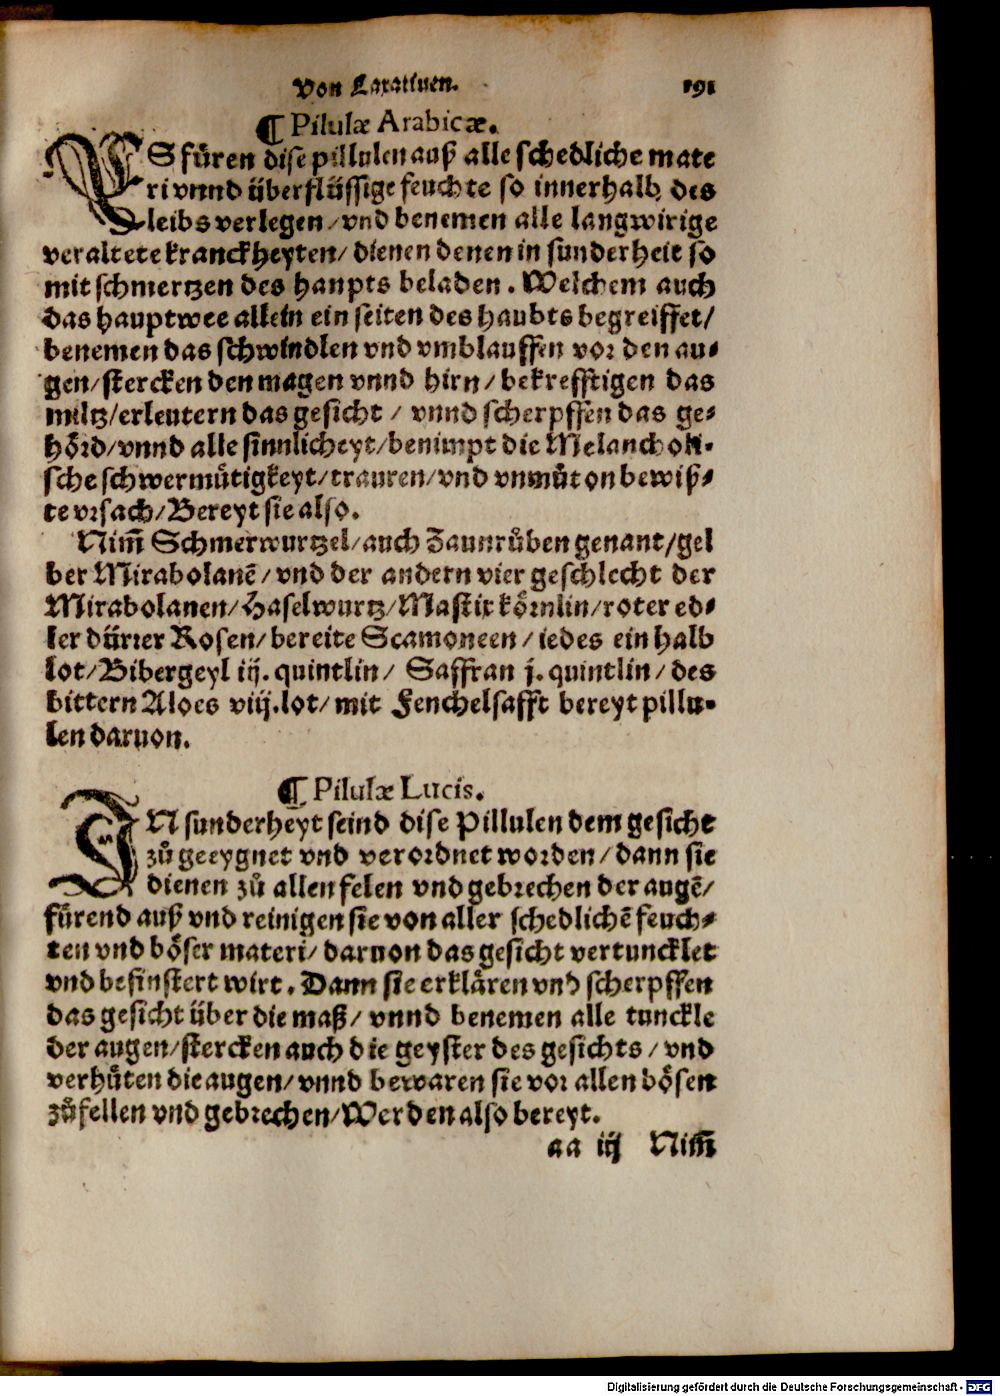 Von Laxatiuen. 191
¶ Pilulæ Arabicæ.
ES füren dise pillulen auß alle schedliche mate
ri vnnd überflüssige feuchte so innerhalb des
leibs verlegen/vnd benemen alle langwirige
veraltete kranckheyten/ dienen denen in sunderheit so
mit schmertzen des haupts beladen. Welchem auch
das hauptwee allein ein seiten des haubts begreiffet/
benemen das schwindlen vnd vmblauffen vor den au-
gen/stercken den magen vnnd hirn/bekrefftigen das
miltz/erleutern das gesicht / vnnd scherpffen das ge-
hörd/vnnd alle sinnlicheyt/benimpt die Melancholi-
sche schwermütigkeyt/trauren/vnd vnmůt on bewiß-
te vrsach/Bereyt sie also.
Nim̃ Schmerwurtzel/auch Zaunrůben genant/gel
ber Mirabolanẽ/vnd der andern vier geschlecht der
Mirabolanen/Haselwurtz/Mastix körnlin/roter ed-
ler dürrer Rosen/bereite Scamoneen/iedes ein halb
lot/Bibergeyl iij. quintlin/ Saffran j. quintlin/des
bittern Aloes viij.lot/mit Fenchelsafft bereyt pillu-
len daruon.
¶ Pilulæ Lucis.
IN sunderheyt seind dise Pillulen dem gesicht
zů geeygnet vnd verordnet worden/dann sie
dienen zů allen felen vnd gebrechen der augẽ/
fürend auß vnd reinigen sie von aller schedlichẽ feuch-
ten vnd böser materi/daruon das gesicht vertuncklet
vnd befinstert wirt. Dann sie erklären vnd scherpffen
das gesicht über die maß/vnnd benemen alle tunckle
der augen/stercken auch die geyster des gesichts/vnd
verhüten die augen/vnnd bewaren sie vor allen bösen
zůfellen vnd gebrechen/Werden also bereyt.
aa iij Nim̃
Digitalisierung gefördert durch die Deutsche Forschungsgemeinschaft - DFG